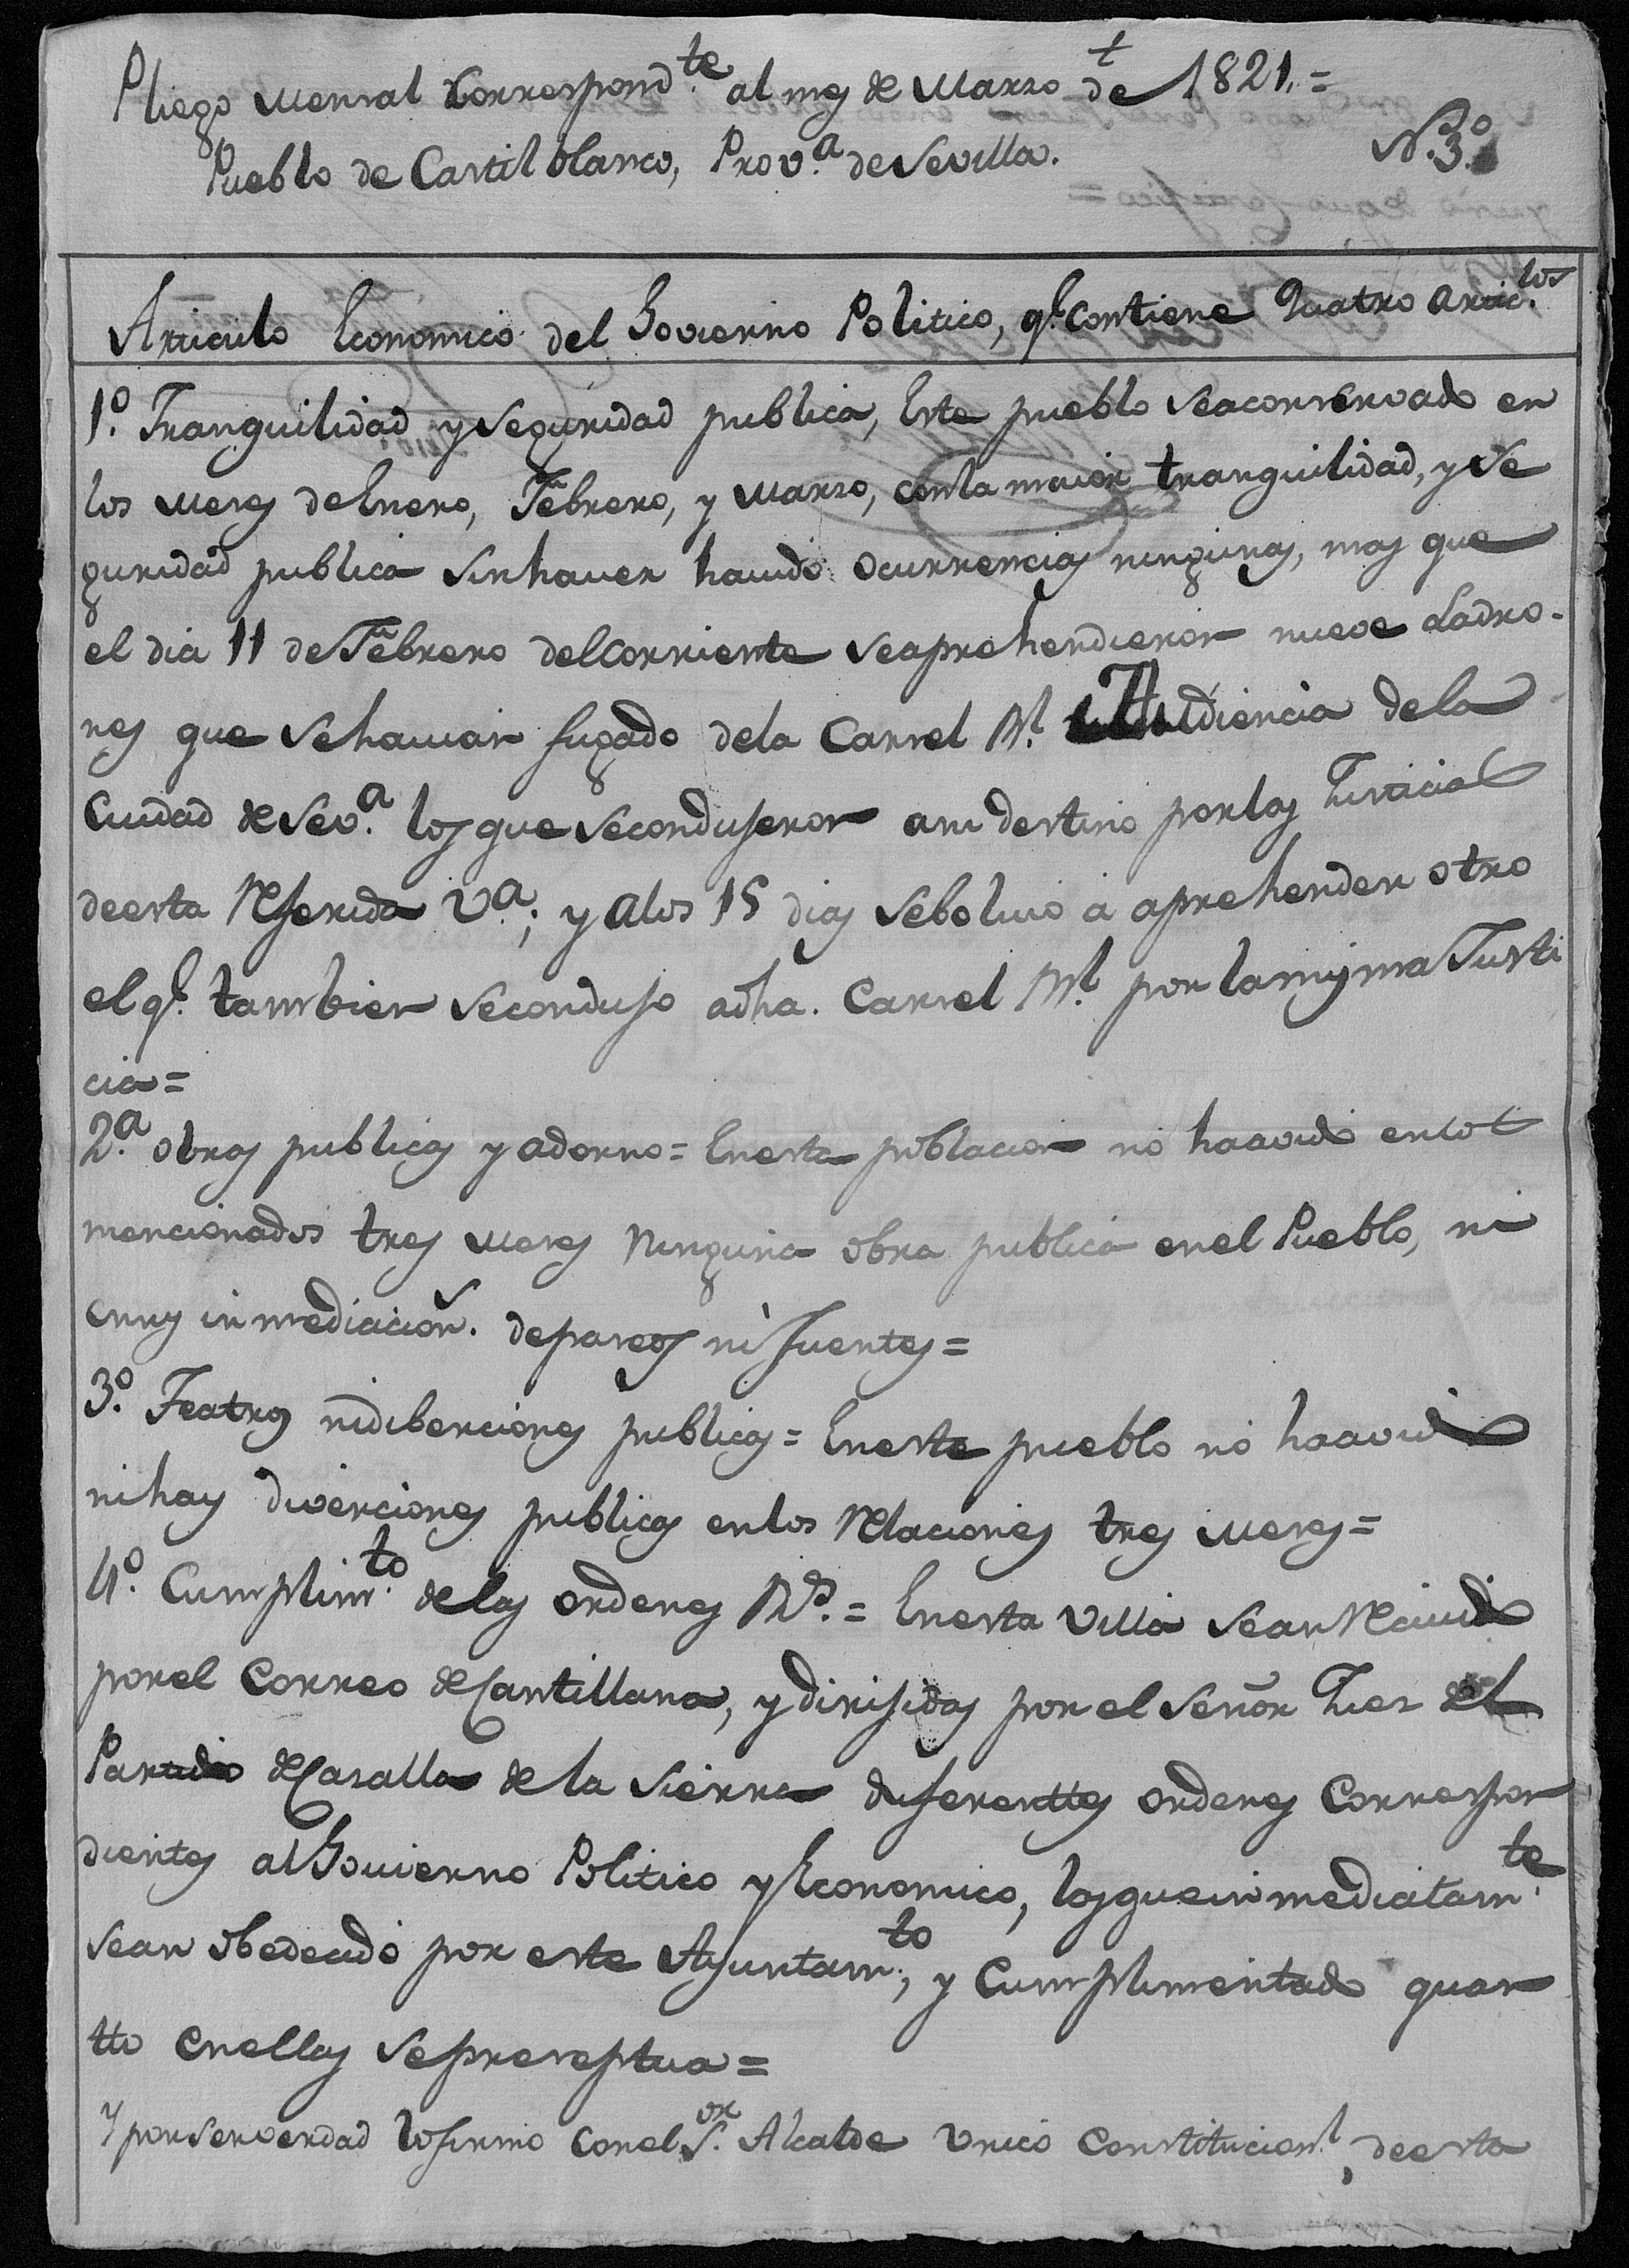 Pliego Mensal Correspond.te al mes de Marzo de 1821,=
Pueblo de Castilblanco, Prov.a de Sevilla.
N.3.o
Articulo Economico del Govierno Politico, q.e contiene Quatro artic.los
1.o Tranquilidad y Seguridad publica, Este pueblo seaconservado en
los meses deEnero, Febrero, y Marzo, conla maior tranquilidad, y Se
guridad publica sinhaver havido ocurrencias ningunas, mas que
el dia 11 deFebrero delcorriente seaprehendieron nueve Ladro-
nes que sehavian fugado dela Carsel Rl. Audiencia dela
Ciudad de Sev.a los que secondujeron asu destino porlas Justicias
deesta Referida V.a; y alos 15 dias sebolvió á aprehender otro
el q.e tambien secondujo adha. Carsel Rl. por lamisma Justi
cia=
2.a obras publicas y adorno= Enesta poblacion no haavido enlos
mencionados tres meses Ninguna obra publica enel Pueblo, ni
ensus inmediacion. depaseos ni fuentes=
3.o Teatros nidiberciones publicas= Eneste pueblo no haavido
nihay diverciones publicas enlos Relaciones tres meses=
4.o Cumplim.to delas ordenes Rs.= Enesta Villa sean Recivido
porel Correo deCantillana, y dirijidas por el Señor Juez del
Partido deCasalla de la Sierra diferenttes ordenes Correspon
dientes alGovierno Politico y Economico, las queinmediatam.te
sean obedecido por este Ayuntam.to, y Cumplimentado quan
tto enellas sepreseptua=
Y porserverdad lofirmo conel S.or Alcalde unico Constitucionl. deesta